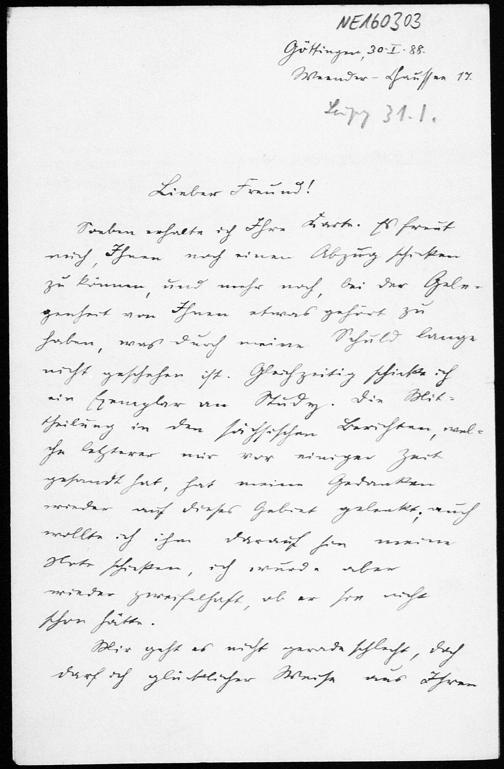 NE160303
Göttingen, 30.I.88.
Weender-Chaussee 17.
31.1.
Lieber Freund!
Soeben erhalte ich Ihre Karte. Es freut
mich, Ihnen noch einen Abzug schicken
zu können, und mehr noch, bei der Gele-
genheit von Ihnen etwas gehört zu
haben, was durch meine Schuld lange
nicht geschehen ist. Gleichzeitig schicke ich
ein Exemplar an Study. Die Mit-
theilung in den sächsischen Berichten, wel-
che letzterer mir vor einiger Zeit
gesandt hat, hat meine Gedanken
wieder auf dieses Gebiet gelenkt, auch
wollte ich ihm darauf hin meine
Note schicken, ich wurde aber
wieder zweifelhaft, ob er sie nicht
schon hätte.
Mir geht es nicht gerade schlecht, doch
darf ich glücklicher Weise aus Ihren